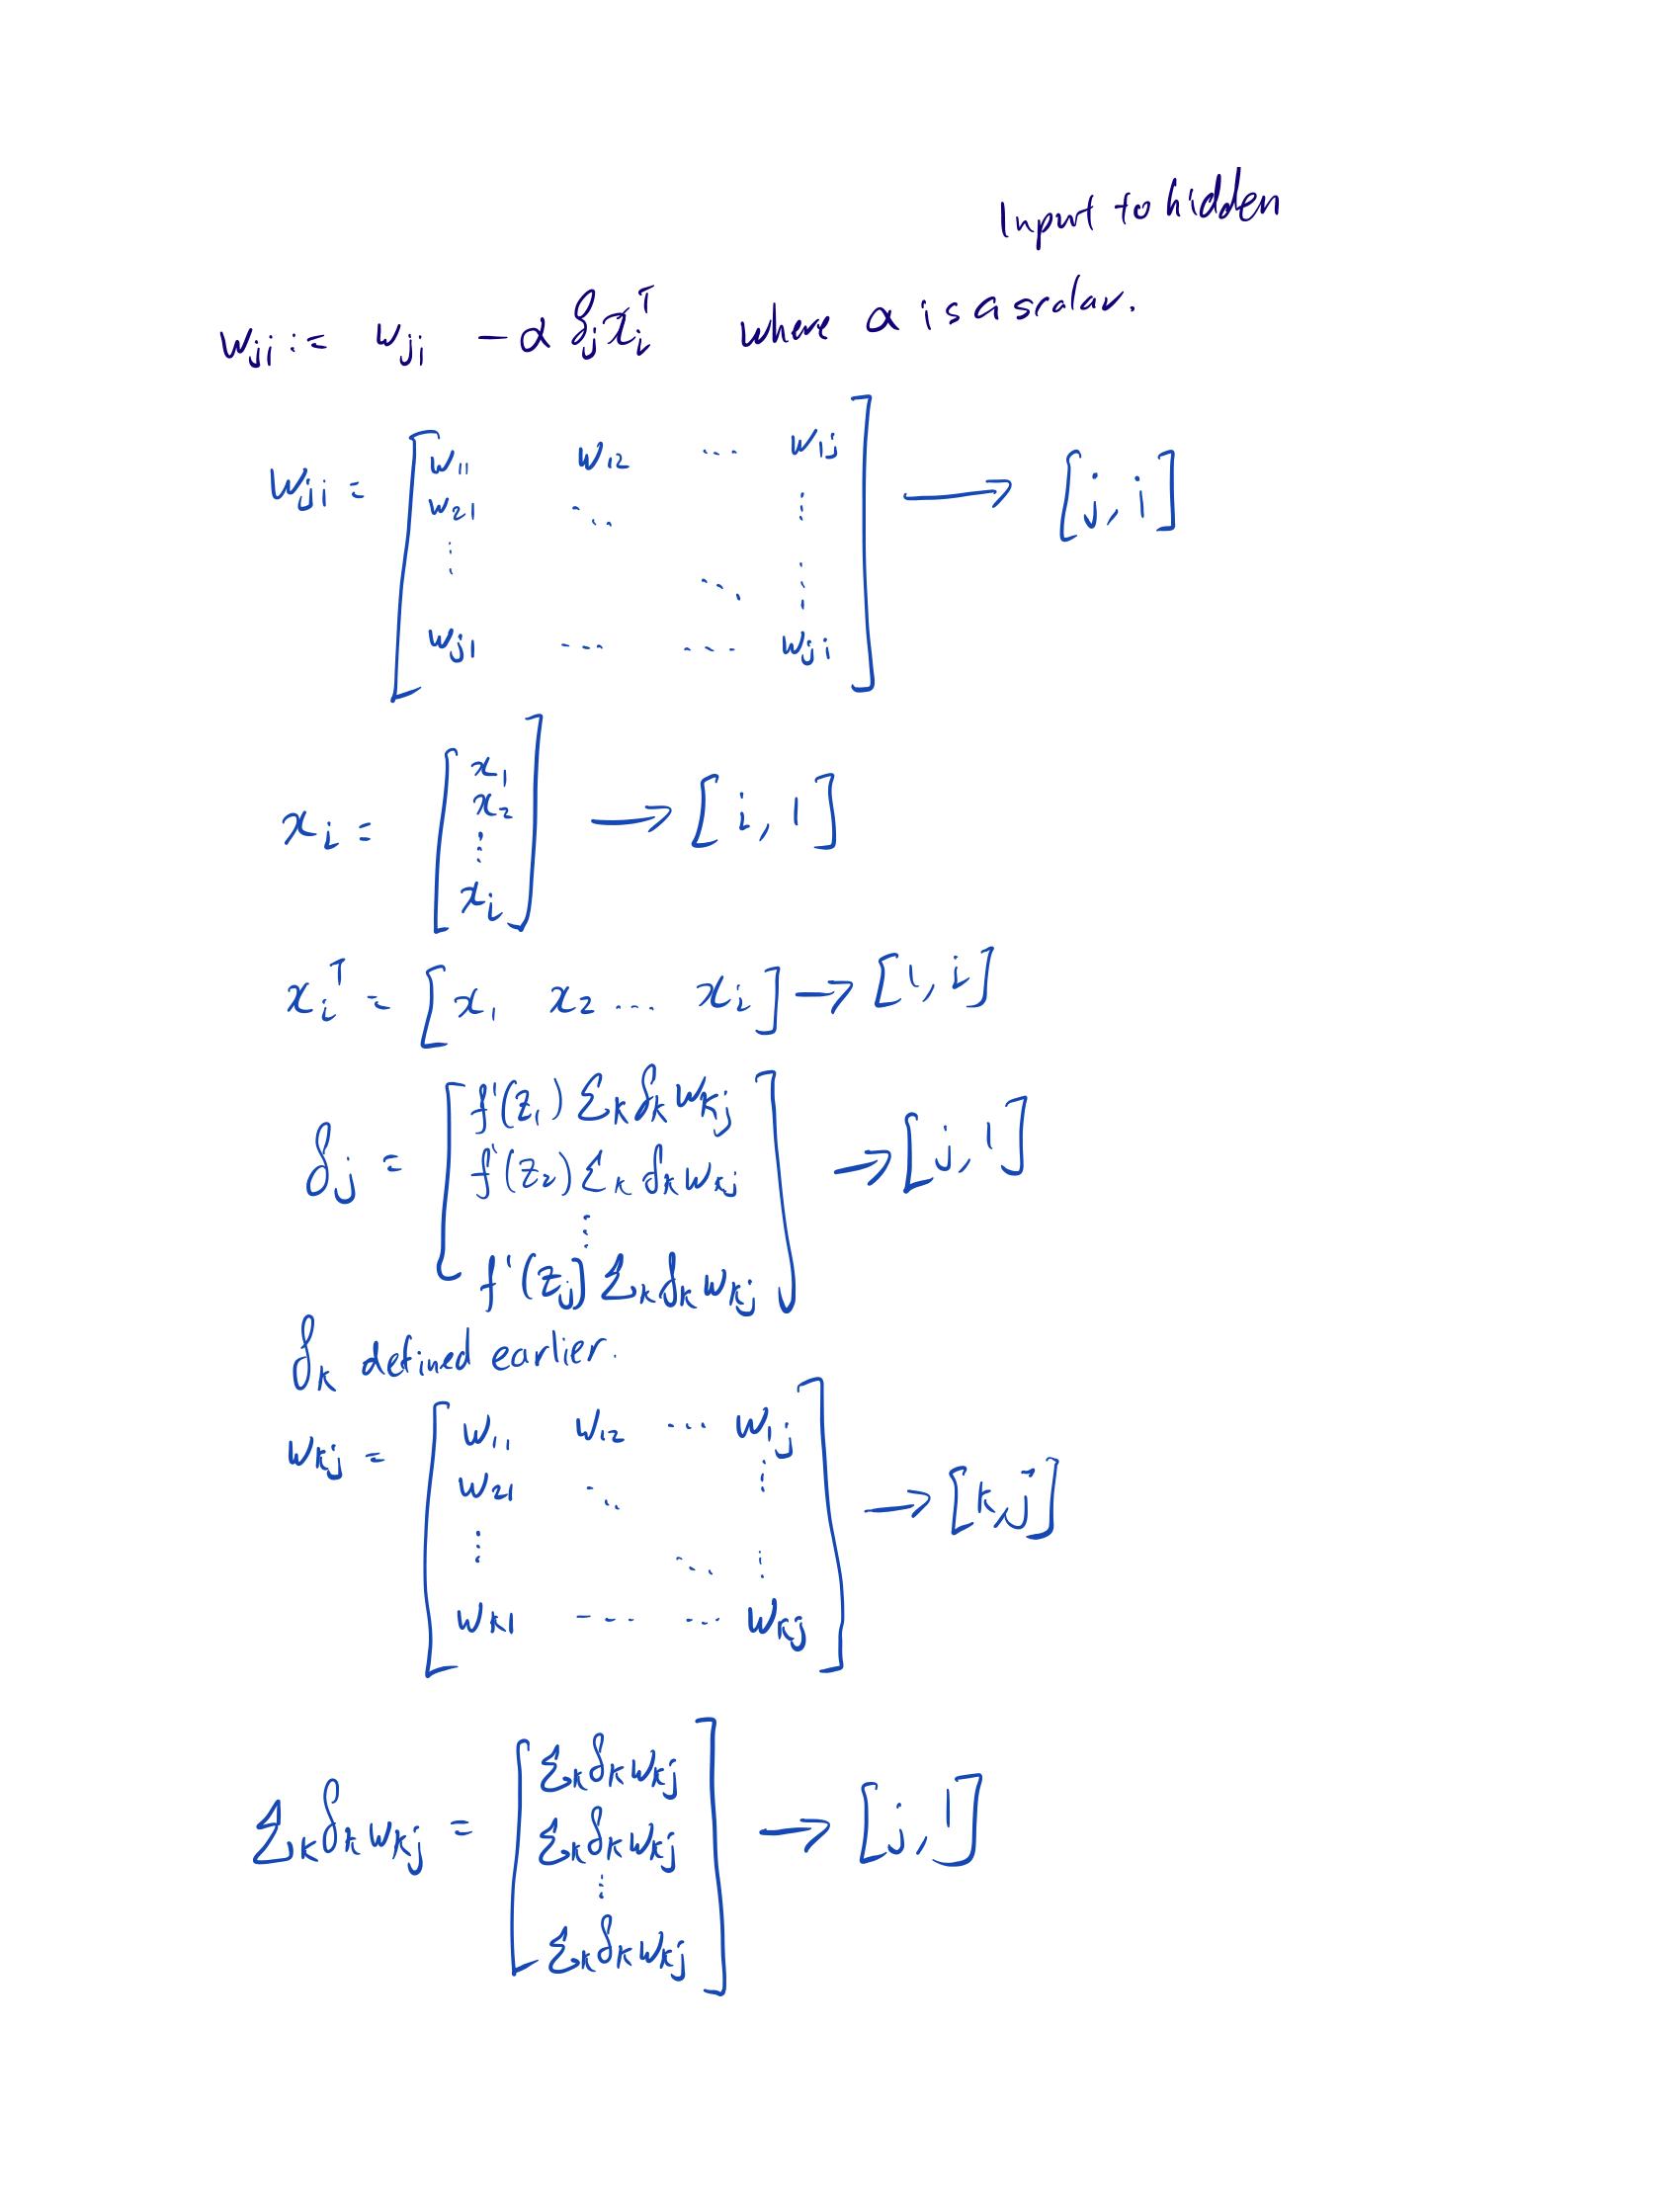 Input to hidden
w_ji := w_ji - α δ_j x_i^T where α is a scalar.
w_ji = [ w_11 w_12 ... w_1j
w_21 ⋱ ⋮
⋮ ⋱ ⋮
w_j1 ... ... w_ji ] → [j, i]
x_i = [ x_1
x_2
⋮
x_i ] → [i, 1]
x_i^T = [ x_1 x_2 ... x_i ] → [1, i]
δ_j = [ f'(z_1) Σ_k δ_k w_kj
f'(z_2) Σ_k δ_k w_kj
⋮
f'(z_j) Σ_k δ_k w_kj ] → [j, 1]
δ_k defined earlier.
w_kj = [ w_11 w_12 ... w_1j
w_21 ⋱ ⋮
⋮ ⋱ ⋮
w_k1 ... ... w_kj ] → [k, j]
Σ_k δ_k w_kj = [ Σ_k δ_k w_kj
Σ_k δ_k w_kj
⋮
Σ_k δ_k w_kj ] → [j, 1]